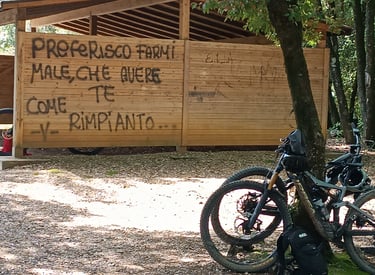 PREFERISCO FARMI
MALE, CHE AVERE
TE
COME RIMPIANTO..